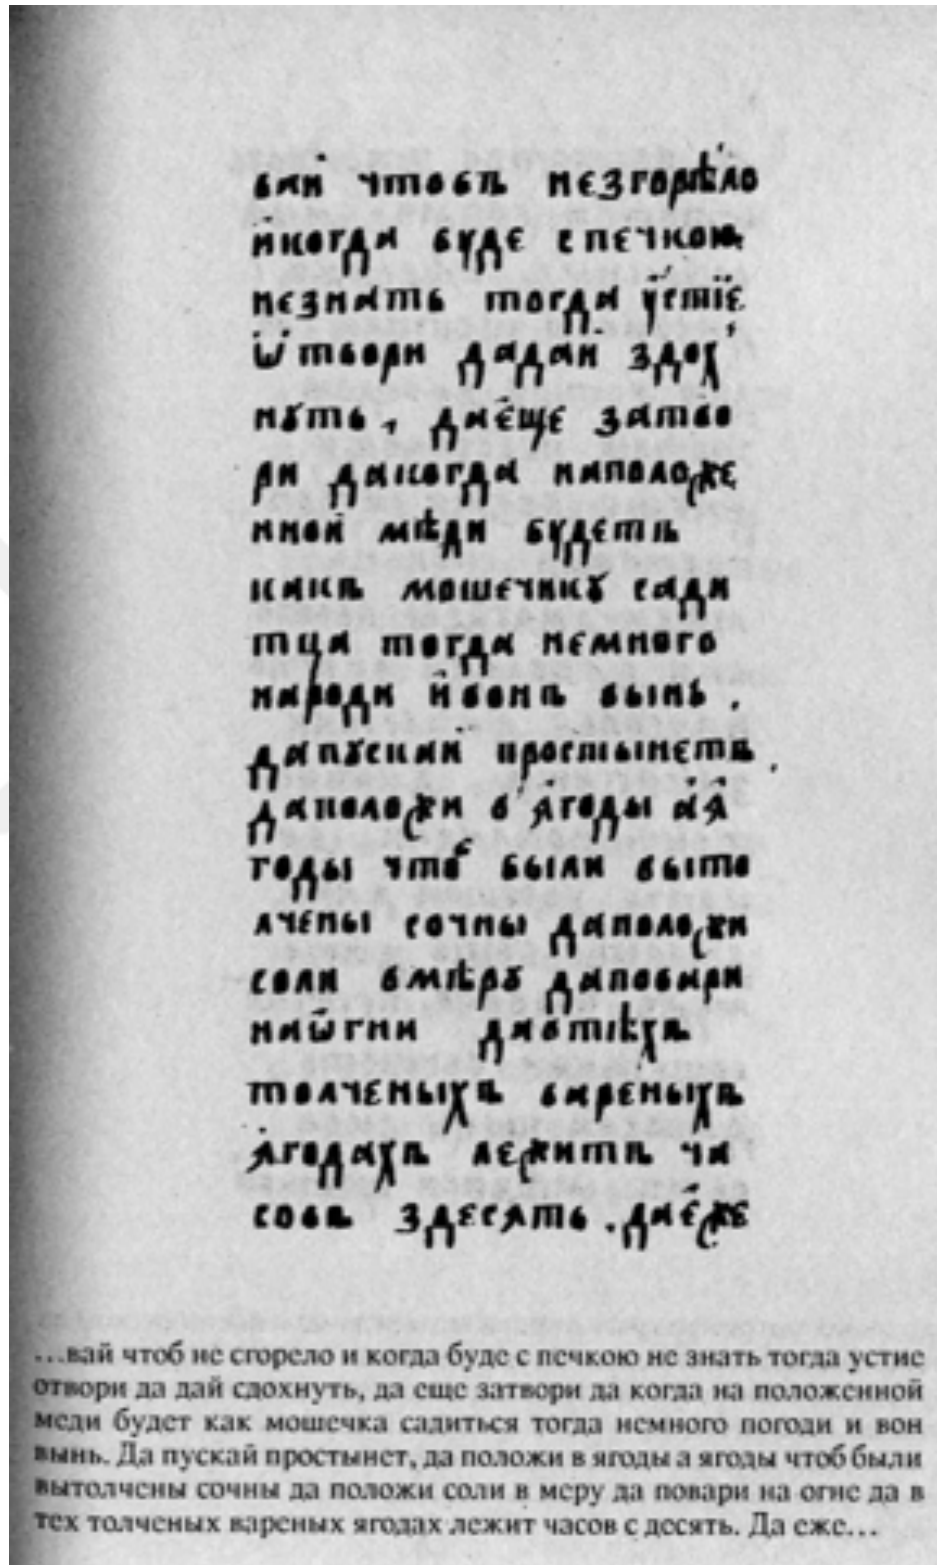 вай чтобъ незгорѣло
икогда буде спечкою
незнать тогда устїе
ѿтвори дадай здох
нꙋть, даеще затво
ри дакогда наположе
нной мѣди будетъ
какъ мошечкꙋ сади
тца тогда немного
погоди ивонъ вынь.
дапꙋскай простынетъ,
даположи в ягоды аꙗ
годы чтоб были выто
лчены сочны даположи
соли вмѣрꙋ даповари
наѡгни давтѣхъ
толченыхъ вареныхъ
ягодахъ лежитъ ча
совъ здесять. даеже
...вай чтоб не сгорело и когда буде с печкою не знать тогда устие
отвори да дай сдохнуть, да еще затвори да когда на положенной
меди будет как мошечка садиться тогда немного погоди и вон
вынь. Да пускай простынет, да положи в ягоды а ягоды чтоб были
вытолчены сочны да положи соли в меру да повари на огне да в
тех толченых вареных ягодах лежит часов с десять. Да еже...